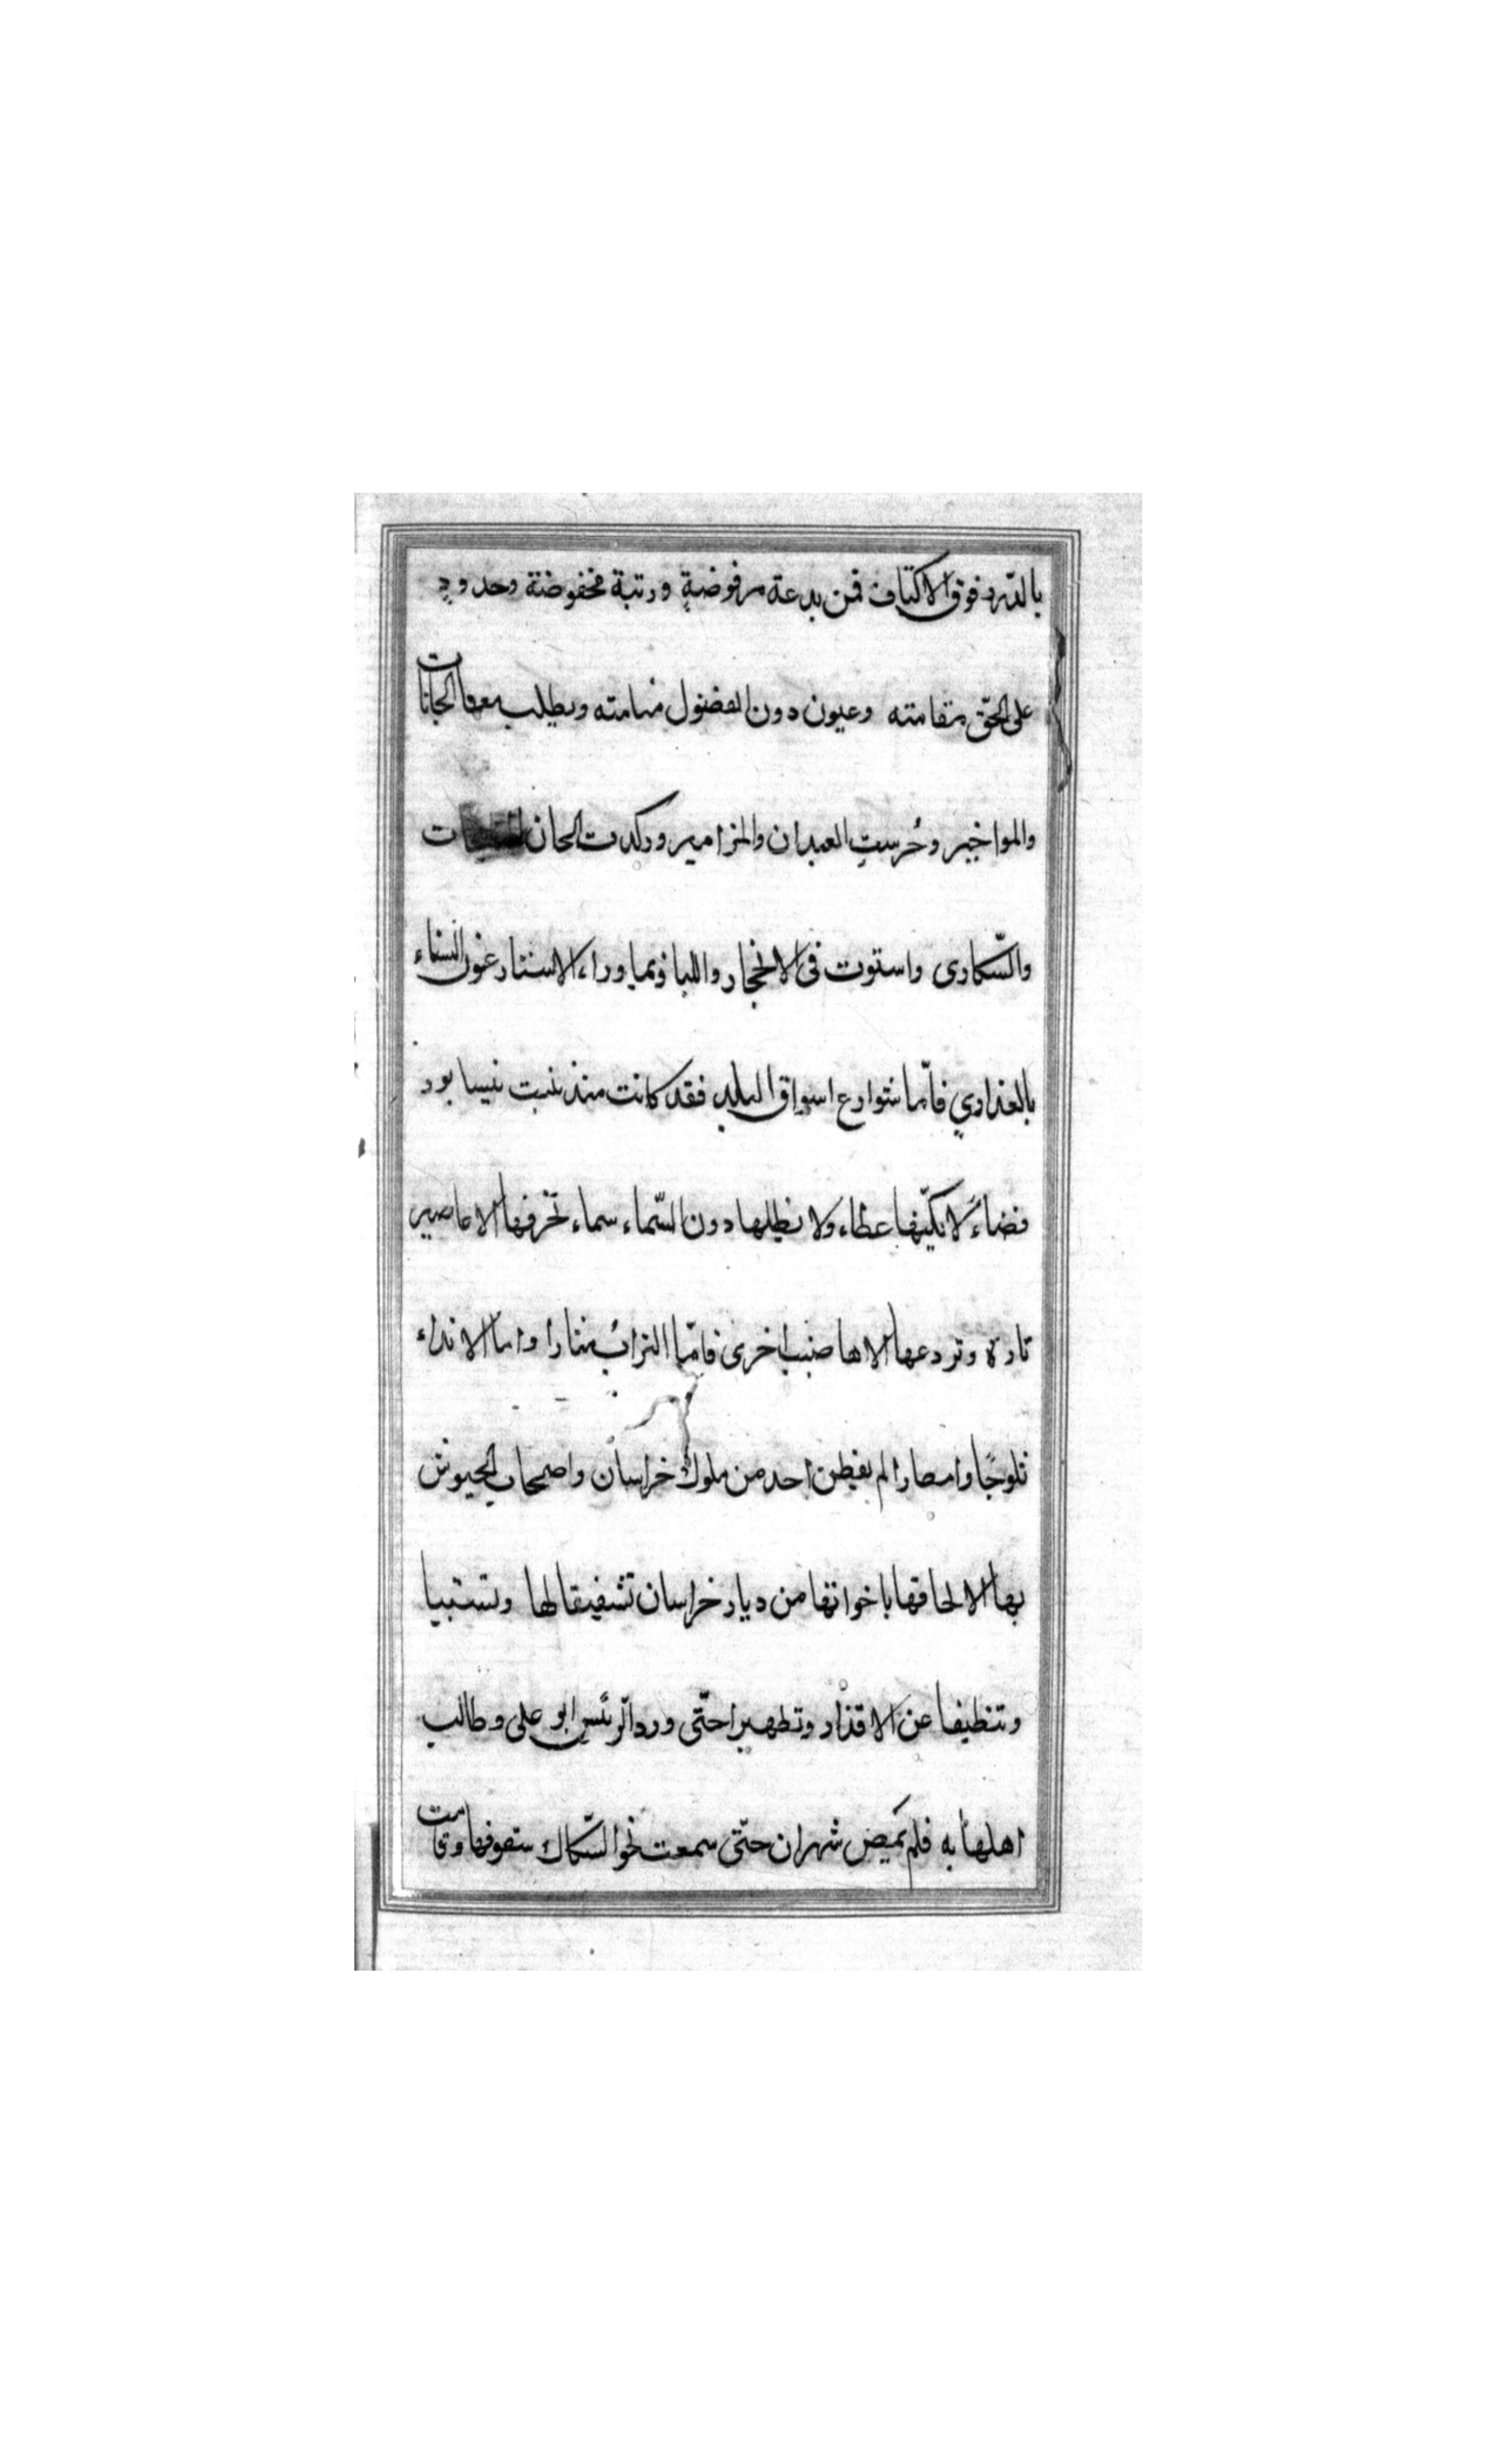 بالدّرر فوق الاكتاف فمن بدعة مرفوضةٍ ورتبة مخفوضة وحدودٍ
على الحقّ مقامته وعيون دون الفضول منامته وبطلب معها الحانات
والمواخير وخُرستِ العيدان والمزامير وركدت الحان
والسّكارى واستوت فى الانحجار واللياذ بما وراء الاستار عون النساء
بالعذاري فامّا شوارع اسواق البلد فقد كانت منذ بنيت نيسابور
فضاءً لا يكنّها غطاء ولا يظلها دون السّماء سماء تخرقها الاعاصير
تارة وتردعها الاهاضيب اخرى فامّا الترابُ مثارا واما الانداء
ثلوجًا وامصارا لم يفطن احد من ملوك خراسان واصحاب الجيوش
بها الالحاقها باخواتها من ديار خراسان تشفيقا لها وتستبيا
وتنظيفا عن الاقذار وتطهيرا حتّى ورد الرئيس ابو على وطالب
اهلها به فلم يمض شهران حتّى سمعت نحو السّكاك سقوفها وقامت